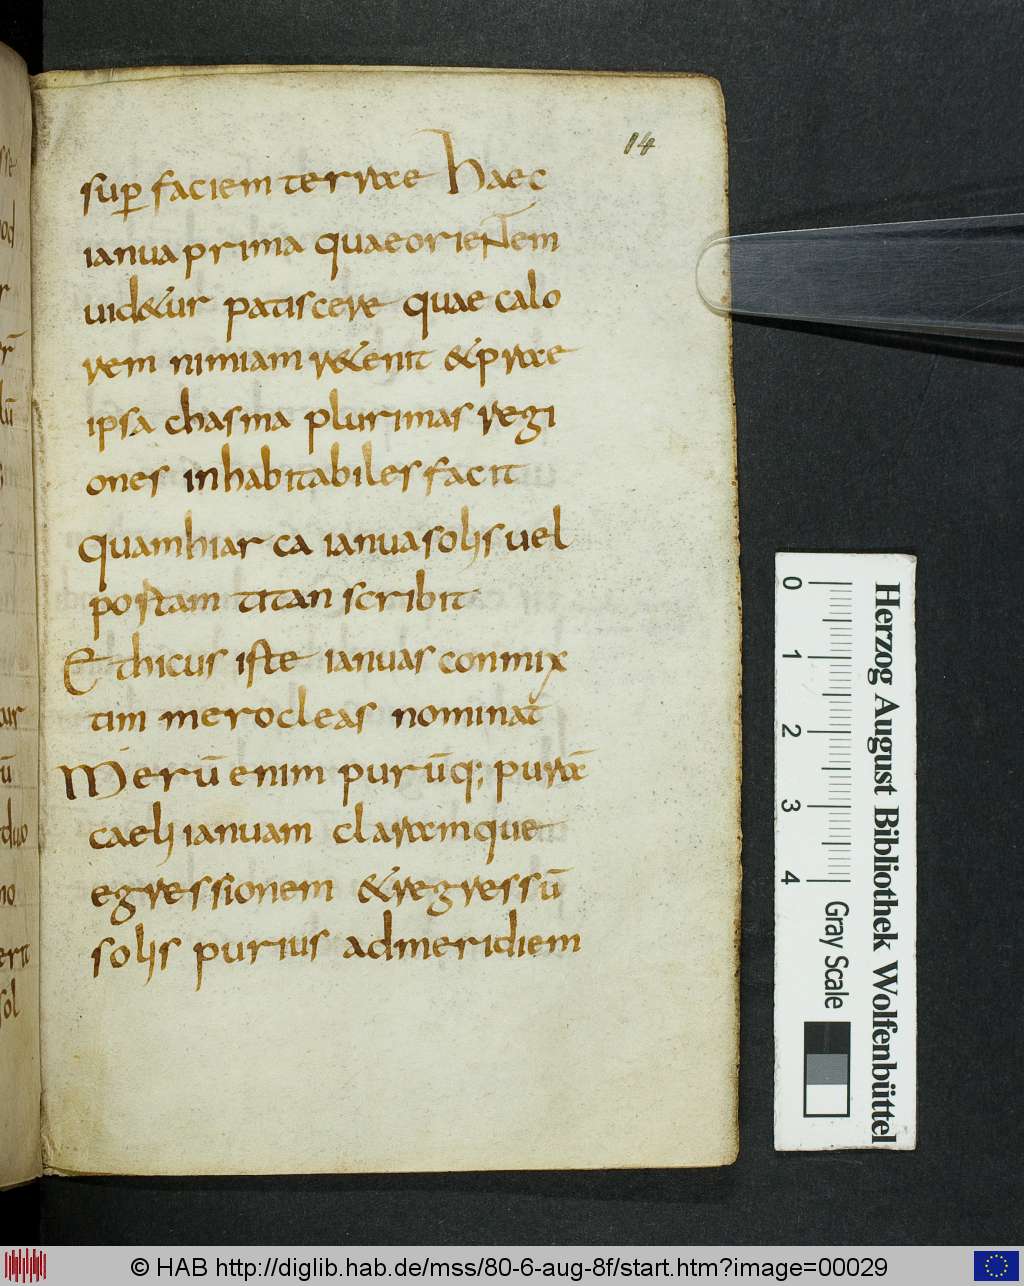 14
sup faciem terrae Haec
ianua prima quae orientem
uid&ur patiscere quae calo
rem nimiam r&enit &prae
ipsa chasma plurimas regi
ones inhabitabiles facit
quam hiar ca ianua solis uel
postam titan scribit
Ethicus iste ianuas conmix
tim merocleas nominat
Merū enim purūq; purā
caeli ianuam claramque
egressionem &regressū
solis purius ad meridiem
Herzog August Bibliothek Wolfenbüttel
0 1 2 3 4
Gray Scale
© HAB http://diglib.hab.de/mss/80-6-aug-8f/start.htm?image=00029